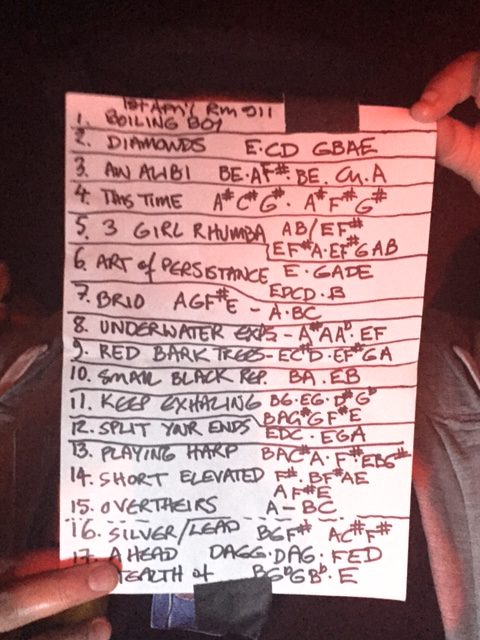 1. BOILING BOY
2. DIAMONDS E.CD GBAE
3. AN ALIBI BE.AF# BE. A
4. THIS TIME A# C# G#. A# F# G#
5. 3 GIRL RHUMBA AB/EF#
EF#A.EF#GAB
6. ART of PERSISTANCE E.GADE
EDCD.B
7. BRIO AGF#E - A.BC
8. UNDERWATER EXPS - A#AAb. EF
9. RED BARK TREES - EC#D.EF#GA
10. SMALL BLACK REP. BA.EB
11. KEEP EXHALING BG.EG.
BAG#GF#E
12. SPLIT YOUR ENDS EDC.EGA
13. PLAYING HARP BAC#A.F#.EBG#
14. SHORT ELEVATED F#.BF#AE
AF#E
15. OVERTHEIRS A-BC
16. SILVER/LEAD BGF# AC#F#
17. AHEAD DAGG.DAG.FED
of BGbGBb.E